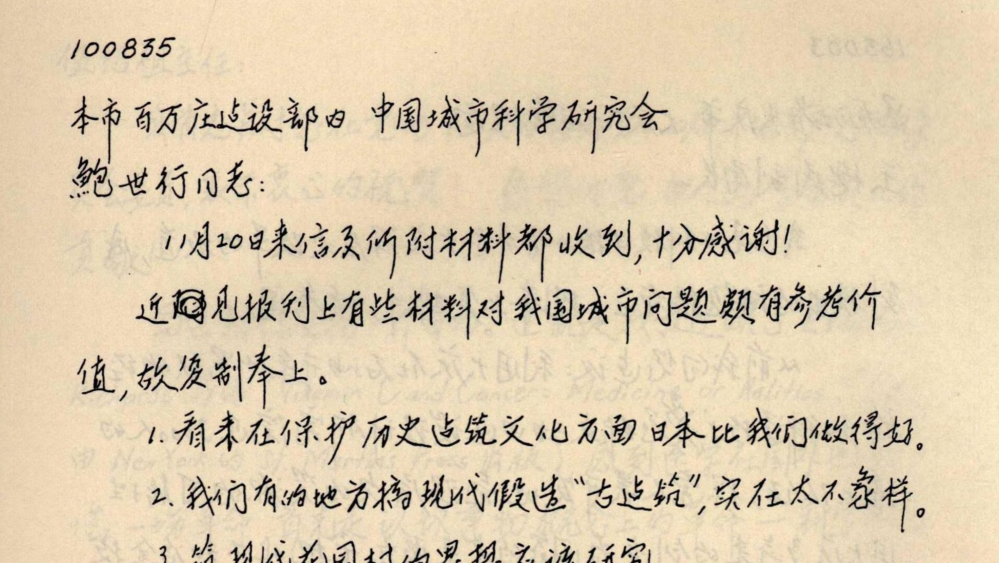 100835
本市百万庄建设部内 中国城市科学研究会
鲍世行同志:
11月20日来信及所附材料都收到,十分感谢!
近见报刊上有些材料对我国城市问题颇有参考价
值,故复制奉上。
1. 看来在保护历史建筑文化方面日本比我们做得好。
2. 我们有的地方搞现代假造“古建筑”,实在太不象样。
3.